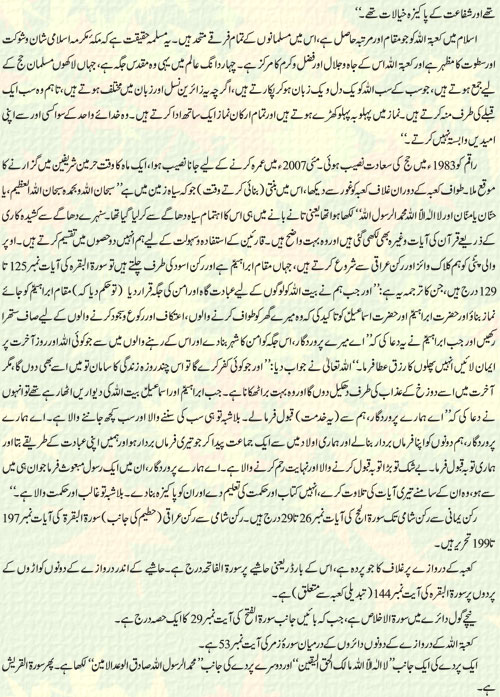 تھے اور شفاعت کے پاکیزہ خیالات تھے۔‘‘
اسلام میں کعبۃ اللہ کو جو مقام اور مرتبہ حاصل ہے، اس میں مسلمانوں کے تمام فرقے متحد ہیں۔ یہ مسلمہ حقیقت ہے کہ مکہ مکرمہ اسلامی شان و شوکت
اور سطوت کا مظہر ہے اور کعبۃ اللہ اس کے جاہ و جلال اور فضل و کرم کا مرکز ہے۔ چہار دانگ عالم میں یہی وہ مقدس جگہ ہے، جہاں لاکھوں مسلمان حج کے
لیے جمع ہوتے ہیں، جو سب کے سب اللہ کو یک دل و یک زبان ہو کر پکارتے ہیں، اگرچہ یہ زائرین نسل اور زبان میں مختلف ہوتے ہیں، تاہم وہ سب ایک
قبلے کی طرف منہ کرتے ہیں۔ نماز میں پہلو بہ پہلو کھڑے ہوتے ہیں اور تمام ارکان نماز ایک ساتھ ادا کرتے ہیں۔ وہ خدائے واحد کے سوا کسی اور سے اپنی
امیدیں وابستہ نہیں کرتے۔‘‘
راقم کو 1983ء میں حج کی سعادت نصیب ہوئی۔ مئی 2007ء میں عمرہ کرنے کے لیے جانا نصیب ہوا، ایک ماہ کا وقت حرمین شریفین میں گزارنے کا
موقع ملا۔ طواف کعبہ کے دوران غلاف کعبہ کو غور سے دیکھا، اس میں بنتی (بنائی کرتے وقت) جو کہ سیاہ زمین میں ہے ’’سبحان اللہ وبحمدہ سبحان اللہ العظیم، یا
حنان یا منان اور لا الہ الا اللہ محمد الرسول اللہ‘‘ لکھا ہوا تھا یعنی تانے بانے میں ہی اس کا اہتمام سیاہ دھاگے سے کر لیا گیا تھا۔ سنہرے دھاگے سے کشیدہ کاری
کے ذریعے قرآن کی آیات وغیرہ بھی لکھی گئی ہیں اور وہ بہت واضح ہیں۔ قارئین کے استفادہ و سہولت کے لیے ہم انہیں دو حصوں میں تقسیم کرتے ہیں۔ اوپر
والی پٹی کو ہم کلاک وائز اور رکن عراقی سے شروع کرتے ہیں، جہاں مقام ابراہیمؑ ہے اور رکن اسود کی طرف چلتے ہیں تو سورۃ البقرہ کی آیات نمبر 125 تا
129 درج ہیں، جن کا ترجمہ یہ ہے: ’’اور جب ہم نے بیت اللہ کو لوگوں کے لیے عبادت گاہ اور امن کی جگہ قرار دیا (تو حکم دیا کہ) مقام ابراہیمؑ کو جائے
نماز بناؤ اور حضرت ابراہیمؑ اور حضرت اسماعیلؑ کو تاکید کی کہ وہ میرے گھر کو طواف کرنے والوں، اعتکاف اور رکوع و سجود کرنے والوں کے لیے صاف ستھرا
رکھیں اور جب ابراہیمؑ نے یہ دعا کی کہ ’’اے میرے پروردگار، اس جگہ کو امن کا شہر بنا دے اور اس کے رہنے والوں میں سے جو کوئی اللہ اور روز آخرت پر
ایمان لائیں انہیں پھلوں کا رزق عطا فرما۔‘‘ اللہ تعالیٰ نے جواب دیا: ’’اور جو کوئی کفر کرے گا تو اس چند روزہ زندگی کا سامان تو میں اسے بھی دوں گا، مگر
آخرت میں اسے دوزخ کے عذاب کی طرف دھکیل دوں گا اور وہ بہت برا ٹھکانا ہے۔ جب ابراہیمؑ اور اسماعیلؑ بیت اللہ کی دیواریں اٹھا رہے تھے تو انہوں
نے دعا کی کہ ’’اے ہمارے پروردگار، ہم سے (یہ خدمت) قبول فرما لے۔ بلاشبہ تو ہی سب کی سننے والا اور سب کچھ جاننے والا ہے۔ اے ہمارے
پروردگار، ہم دونوں کو اپنا فرماں بردار بنا لے اور ہماری اولاد میں سے ایک جماعت پیدا کر جو تیری فرماں بردار ہو اور ہمیں اپنی عبادت کے طریقے بتا اور
ہماری توبہ قبول فرما۔ بے شک تو بڑا توبہ قبول کرنے والا اور نہایت رحم کرنے والا ہے۔ اے ہمارے پروردگار، ان میں ایک رسول مبعوث فرما جو ان ہی میں
سے ہو، وہ ان کے سامنے تیری آیات کی تلاوت کرے، انہیں کتاب اور حکمت کی تعلیم دے اور ان کو پاکیزہ بنا دے۔ بلاشبہ تو غالب اور حکمت والا ہے۔‘‘
رکن یمانی سے رکن شامی تک سورۃ الحج کی آیات نمبر 26 تا 29 درج ہیں۔ رکن شامی سے رکن عراقی (حطیم کی جانب) سورۃ البقرۃ کی آیات نمبر 197
تا 199 تحریر ہیں۔
کعبہ کے دروازے پر غلاف کا جو پردہ ہے، اس کے بارڈر یعنی حاشیے پر سورۃ الفاتحہ درج ہے۔ حاشیے کے اندر دروازے کے دونوں کواڑوں کے
پردوں پر سورۃ البقرہ کی آیت نمبر 144 (تبدیلی کعبہ سے متعلق) ہے۔
نیچے گول دائرے میں سورۃ الاخلاص ہے، جب کہ بائیں جانب سورۃ الفتح کی آیت نمبر 29 کا ایک حصہ درج ہے۔
کعبۃ اللہ کے دروازے کے دونوں دائروں کے درمیان سورۃ زمر کی آیت نمبر 53 ہے۔
ایک پردے کی ایک جانب ’’لا الہ الا اللہ مالک الحق الیقین‘‘ اور دوسرے پردے کی جانب ’’محمد الرسول اللہ صادق الوعد الامین‘‘ لکھا ہے۔ پھر سورۃ القریش
ہے۔